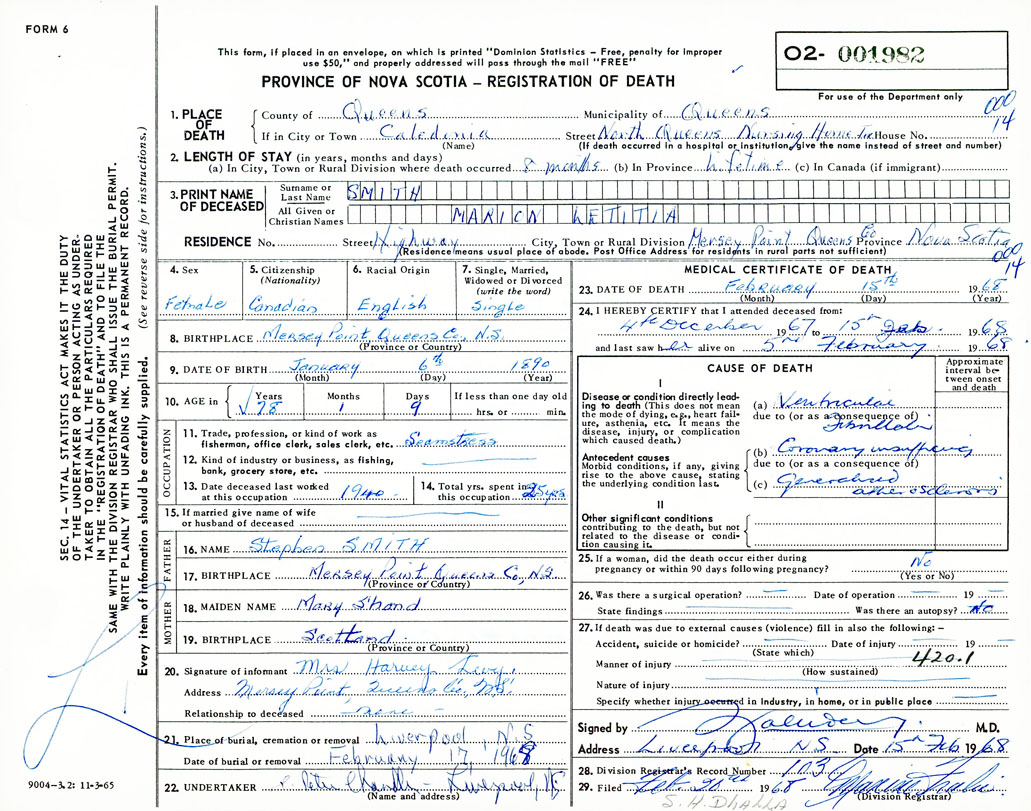 FORM 6
This form, if placed in an envelope, on which is printed "Dominion Statistics – Free, penalty for improper
use $50," and properly addressed will pass through the mail "FREE"
PROVINCE OF NOVA SCOTIA – REGISTRATION OF DEATH
O2- 001982
For use of the Department only
000
14
1. PLACE OF DEATH
County of Queens Municipality of Queens
If in City or Town Caledonia Street North Queens Nursing Home House No.
(Name) (If death occurred in a hospital or institution, give the name instead of street and number)
2. LENGTH OF STAY (in years, months and days)
(a) In City, Town or Rural Division where death occurred 8 months (b) In Province lifetime (c) In Canada (if immigrant)
3. PRINT NAME OF DECEASED
Surname or Last Name SMITH
All Given or Christian Names MARION LETITIA
RESIDENCE No. Street Highway City, Town or Rural Division Mersey Point Queens Co Province Nova Scotia
(Residence means usual place of abode. Post Office Address for residents in rural parts not sufficient)
000
14
4. Sex Female
5. Citizenship (Nationality) Canadian
6. Racial Origin English
7. Single, Married, Widowed or Divorced (write the word) Single
8. BIRTHPLACE Mersey Point, Queens Co, N.S.
(Province or Country)
9. DATE OF BIRTH January 6th 1890
(Month) (Day) (Year)
10. AGE in Years 78 Months 1 Days 9 If less than one day old hrs. or min.
OCCUPATION
11. Trade, profession, or kind of work as fisherman, office clerk, sales clerk, etc. Seamstress
12. Kind of industry or business, as fishing, bank, grocery store, etc.
13. Date deceased last worked at this occupation 1940
14. Total yrs. spent in this occupation 25 yrs
15. If married give name of wife or husband of deceased
FATHER
16. NAME Stephen SMITH
17. BIRTHPLACE Mersey Point Queens Co, N.S.
(Province or Country)
MOTHER
18. MAIDEN NAME Mary Shand
19. BIRTHPLACE Scotland
(Province or Country)
20. Signature of informant Mrs Harvey Levy
Address Mersey Point, Queens Co, N.S.
Relationship to deceased none
21. Place of burial, cremation or removal Liverpool, N.S
Date of burial or removal February 17, 1968
22. UNDERTAKER Liverpool, NS
(Name and address)
MEDICAL CERTIFICATE OF DEATH
23. DATE OF DEATH February 15th 1968
(Month) (Day) (Year)
24. I HEREBY CERTIFY that I attended deceased from:
4th December 1967 to 15th Feb. 1968
and last saw her alive on 5 February 1968
CAUSE OF DEATH
Approximate interval between onset and death
I
Disease or condition directly leading to death (This does not mean the mode of dying, e.g., heart failure, asthenia, etc. It means the disease, injury, or complication which caused death.)
(a) Ventricular Fibrillation
due to (or as a consequence of)
Antecedent causes
Morbid conditions, if any, giving rise to the above cause, stating the underlying condition last.
(b) Coronary insufficiency
due to (or as a consequence of)
(c) Generalized atherosclerosis
II
Other significant conditions
contributing to the death, but not related to the disease or condition causing it.
25. If a woman, did the death occur either during pregnancy or within 90 days following pregnancy? No
(Yes or No)
26. Was there a surgical operation? Date of operation 19
State findings Was there an autopsy? No
27. If death was due to external causes (violence) fill in also the following: –
Accident, suicide or homicide? Date of injury 19
(State which)
420.1
Manner of injury
(How sustained)
Nature of injury
Specify whether injury occurred in Industry, in home, or in public place
Signed by M.D.
Address Liverpool NS Date 15th Feb. 1968
28. Division Registrar's Record Number 103
29. Filed Feb. 20th 1968
(Division Registrar)
S. H. DHALLA
SEC. 14 – VITAL STATISTICS ACT MAKES IT THE DUTY
OF THE UNDERTAKER OR PERSON ACTING AS UNDER-
TAKER TO OBTAIN ALL THE PARTICULARS REQUIRED
IN THE "REGISTRATION OF DEATH" AND TO FILE THE
SAME WITH THE DIVISION REGISTRAR WHO SHALL ISSUE THE BURIAL PERMIT.
WRITE PLAINLY WITH UNFADING INK. THIS IS A PERMANENT RECORD.
Every item of information should be carefully supplied. (See reverse side for instructions.)
9004-3.2: 11-3-65